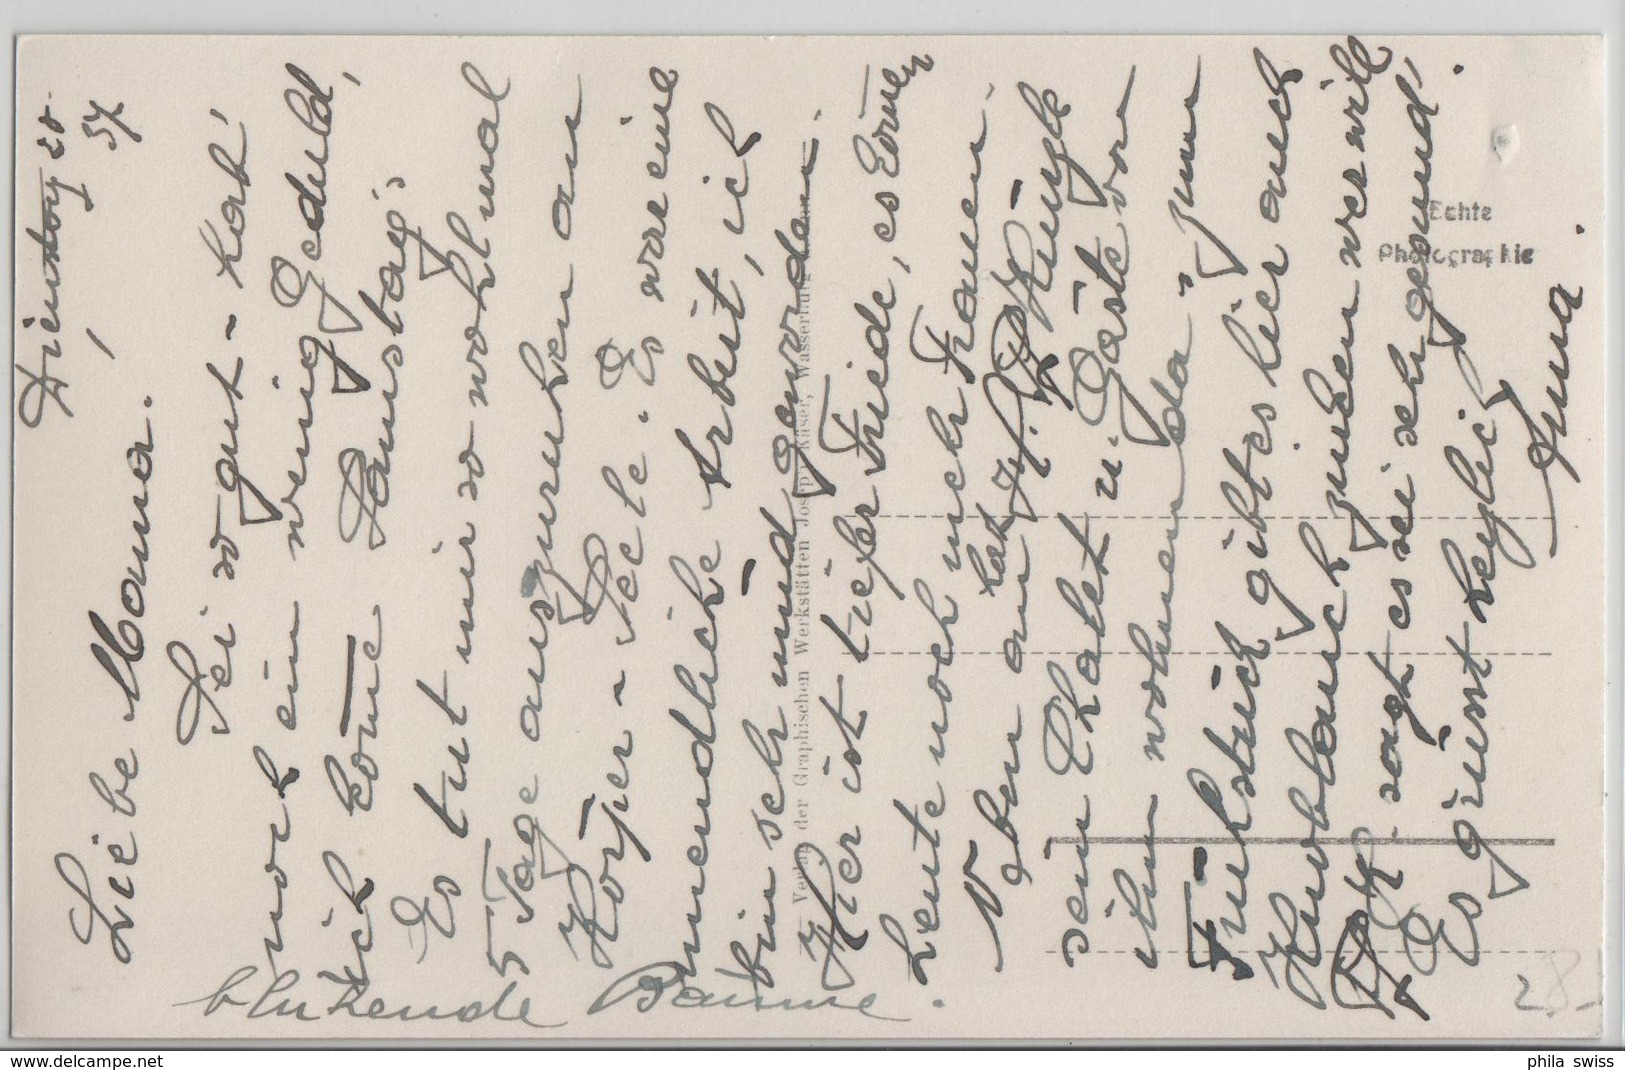 Dienstag 20.
57
Liebe Mama.
Sei so gut - hab'
noch ein wenig Geduld,
ich komme Samstag's
Es tut mir so wohl mal
5 Tage auszuruhen an
Körper - Seele. Es war eine
unendliche Arbeit, ich
bin sehr müd geworden.
Hier ist tiefer Friede, es kommen
Leute noch mehr Frauen.
Oben am hat Pf. Künzle
sein Chalet u. Gäste von
ihm wohnen da" zum
Frühstück gibt es hier auch
Knoblauch zu essen wer will
Pf. sagt es sei sehr gesund.
Es grüsst herzlich
Anna.
blühende Bäume.
Verlag der Graphischen Werkstätten Josef Käser, Wasserburg
Echte
Photographie
28.-
www.delcampe.com
phila swiss